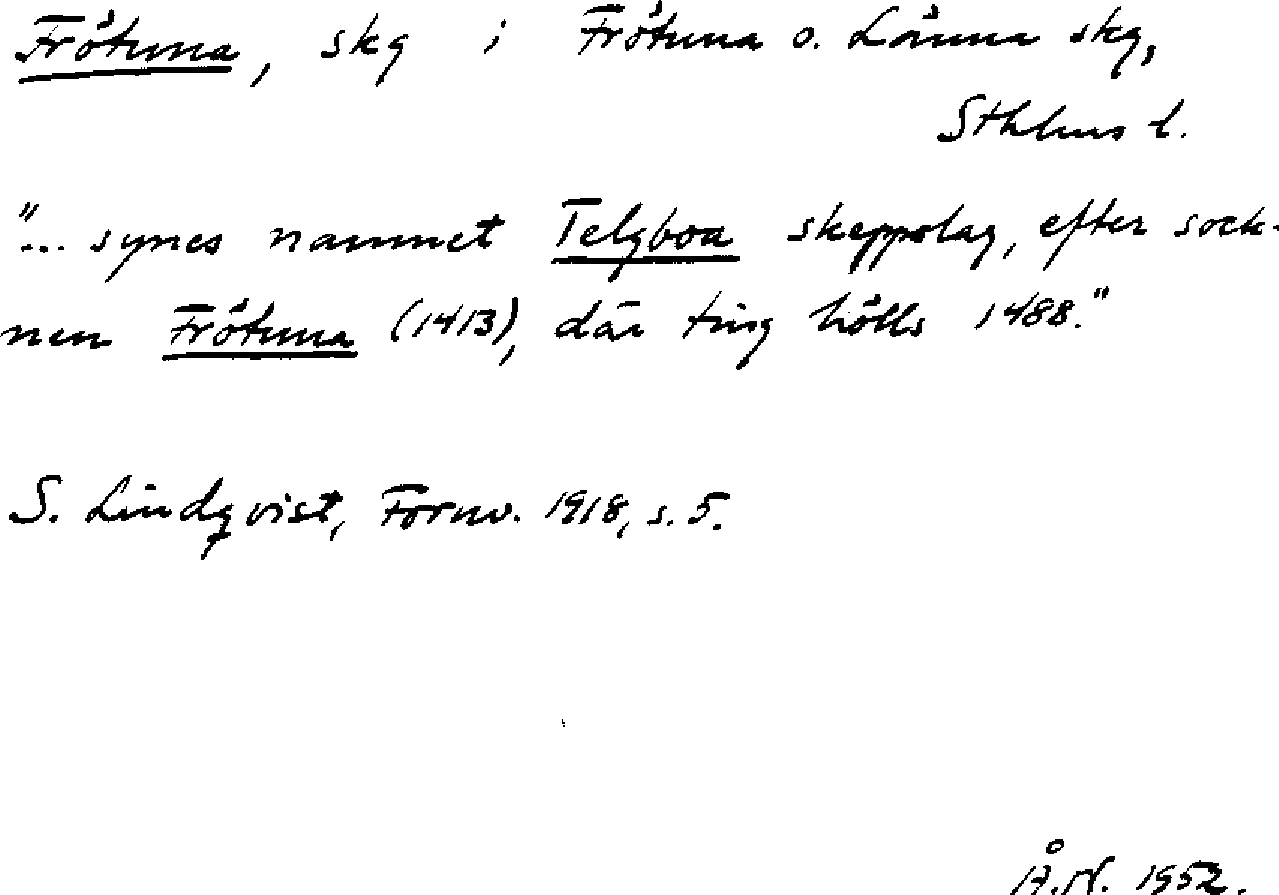 Frötuna, skg i Frötuna o. Länna skg,
Sthlms l.
"... synes namnet Telgboa skeppslag, efter sock-
nen Frötuna (1413), där ting hölls 1488."
S. Lindqvist, Fornv. 1918, s. 5.
Å.N. 1952.